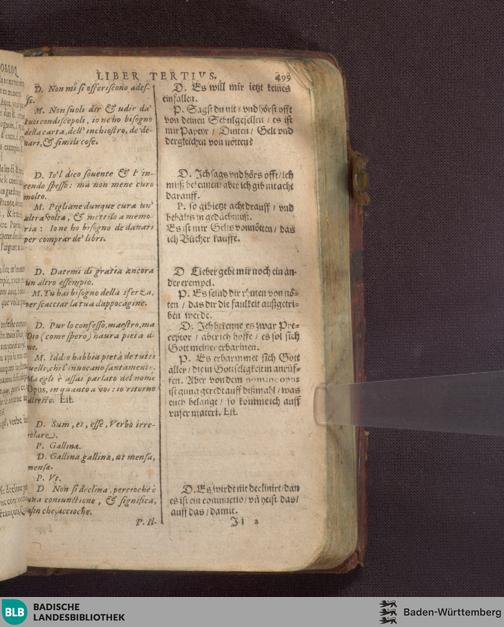 LIBER TERTIVS. 499
D. Non mi si offeriscono ades-
si.
M. Non suoli dir & udir da'
tuoi condiscepoli, io ne ho bisogno
della carta, dell' inchiostro, de' de-
nari, & simili cose.
D. Io'l dico sovente & l' in-
tendo spesso: ma non mene curo
molto.
M. Pigliane dunque cura un'
altra volta, & mettilo a memo-
ria: Io ne ho bisogno de danari
per comprar de' libri.
D. Datemi di gratia ancora
un altro essempio.
M. Tu hai bisogno della sferza,
per scacciar la tua dappocagine.
D. Pur lo confesso, maestro, ma
Dio (come spero) haura pietà di
me.
M. Iddio habbia pietà de tutti
quelli, che l' invocano santamente.
Ma egli è assai parlato del nome
Opus, in quanto a voi: io ritorno
diretro. Est.
D. Sum, es, esse, Verbo irre-
golare.
P. Gallina.
D. Gallina gallinæ, ut mensa,
mensæ.
P. Vt.
D. Non si declina, percioche è
una coniunctione, & significa,
afin che, accioche.
P. II.
D. Es will mir jetzt keines
einfallen.
P. Sagst du nit / und hörst offt
von deinen Schulgesellen / es ist
mir Papeyr / Dinten / Gelt und
dergleichen von nöten?
D. Ich sags und hörs offt / ich
muß bekennen / aber ich gib nit acht
darauff.
P. so gib jetzt acht drauff / und
behalts in gedächtnuß.
Es ist mir Gelts vonnöten / das
ich Bücher kauffe.
D Lieber gebt mir noch ein an-
der exempel.
P. Es seind dir rhuten von nö-
ten / das dir die faulkeit außgetri-
ben werde.
D. Ich bekenne es zwar Pre-
ceptor / aber ich hoffe / es sol sich
Gott meiner erbarmen.
P. Es erbarme sich Gott
aller / die in Gottseligkeit anrüf-
fen. Aber von dem nomine opus
ist gnug geredt auff dißmahl / was
euch belangt / so komme ich auff
unser materi. Est.
D. Es wirdt nit declinirt / dan
es ist ein coniunctio, uñ heist das /
auff das / damit.
Ii 2
BLB
BADISCHE
LANDESBIBLIOTHEK
Baden-Württemberg